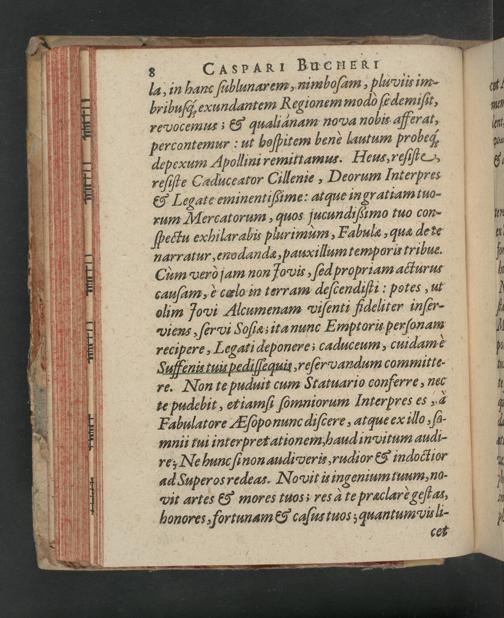 8 CASPARI BUCHERI
la, in hanc sublunarem, nimbosam, pluviis im-
bribusq́; exundantem Regionem modò se demisit,
revocemus; & qualiánam nova nobis afferat,
percontemur: ut hospitem benè lautum probeq́;
depexum Apollini remittamus. Heus, resiste,
resiste Caduceator Cillenie, Deorum Interpres
& Legate eminentißime: atque in gratiam tuo-
rum Mercatorum, quos jucundißimo tuo con-
spectu exhilarabis plurimùm, Fabulæ, quæ de te
narratur, enodandæ, pauxillum temporis tribue.
Cùm verò jam non Jovis, sed propriam acturus
causam, è cœlo in terram descendisti: potes, ut
olim Jovi Alcumenam visenti fideliter inser-
viens, servi Sosiæ; ita nunc Emptoris personam
recipere, Legati deponere; caduceum, cuidam è
Suffenis tuis pedissequis, reservandum committe-
re. Non te puduit cum Statuario conferre, nec
te pudebit, etiamsi somniorum Interpres es, à
Fabulatore Æsopo nunc discere, atque ex illo, so-
mnii tui interpretationem, haud invitum audi-
re; Ne hunc si non audiveris, rudior & indoctior
ad Superos redeas. Novit is ingenium tuum, no-
vit artes & mores tuos; res à te præclarè gestas,
honores, fortunam & casus tuos; quantumvis li-
cet